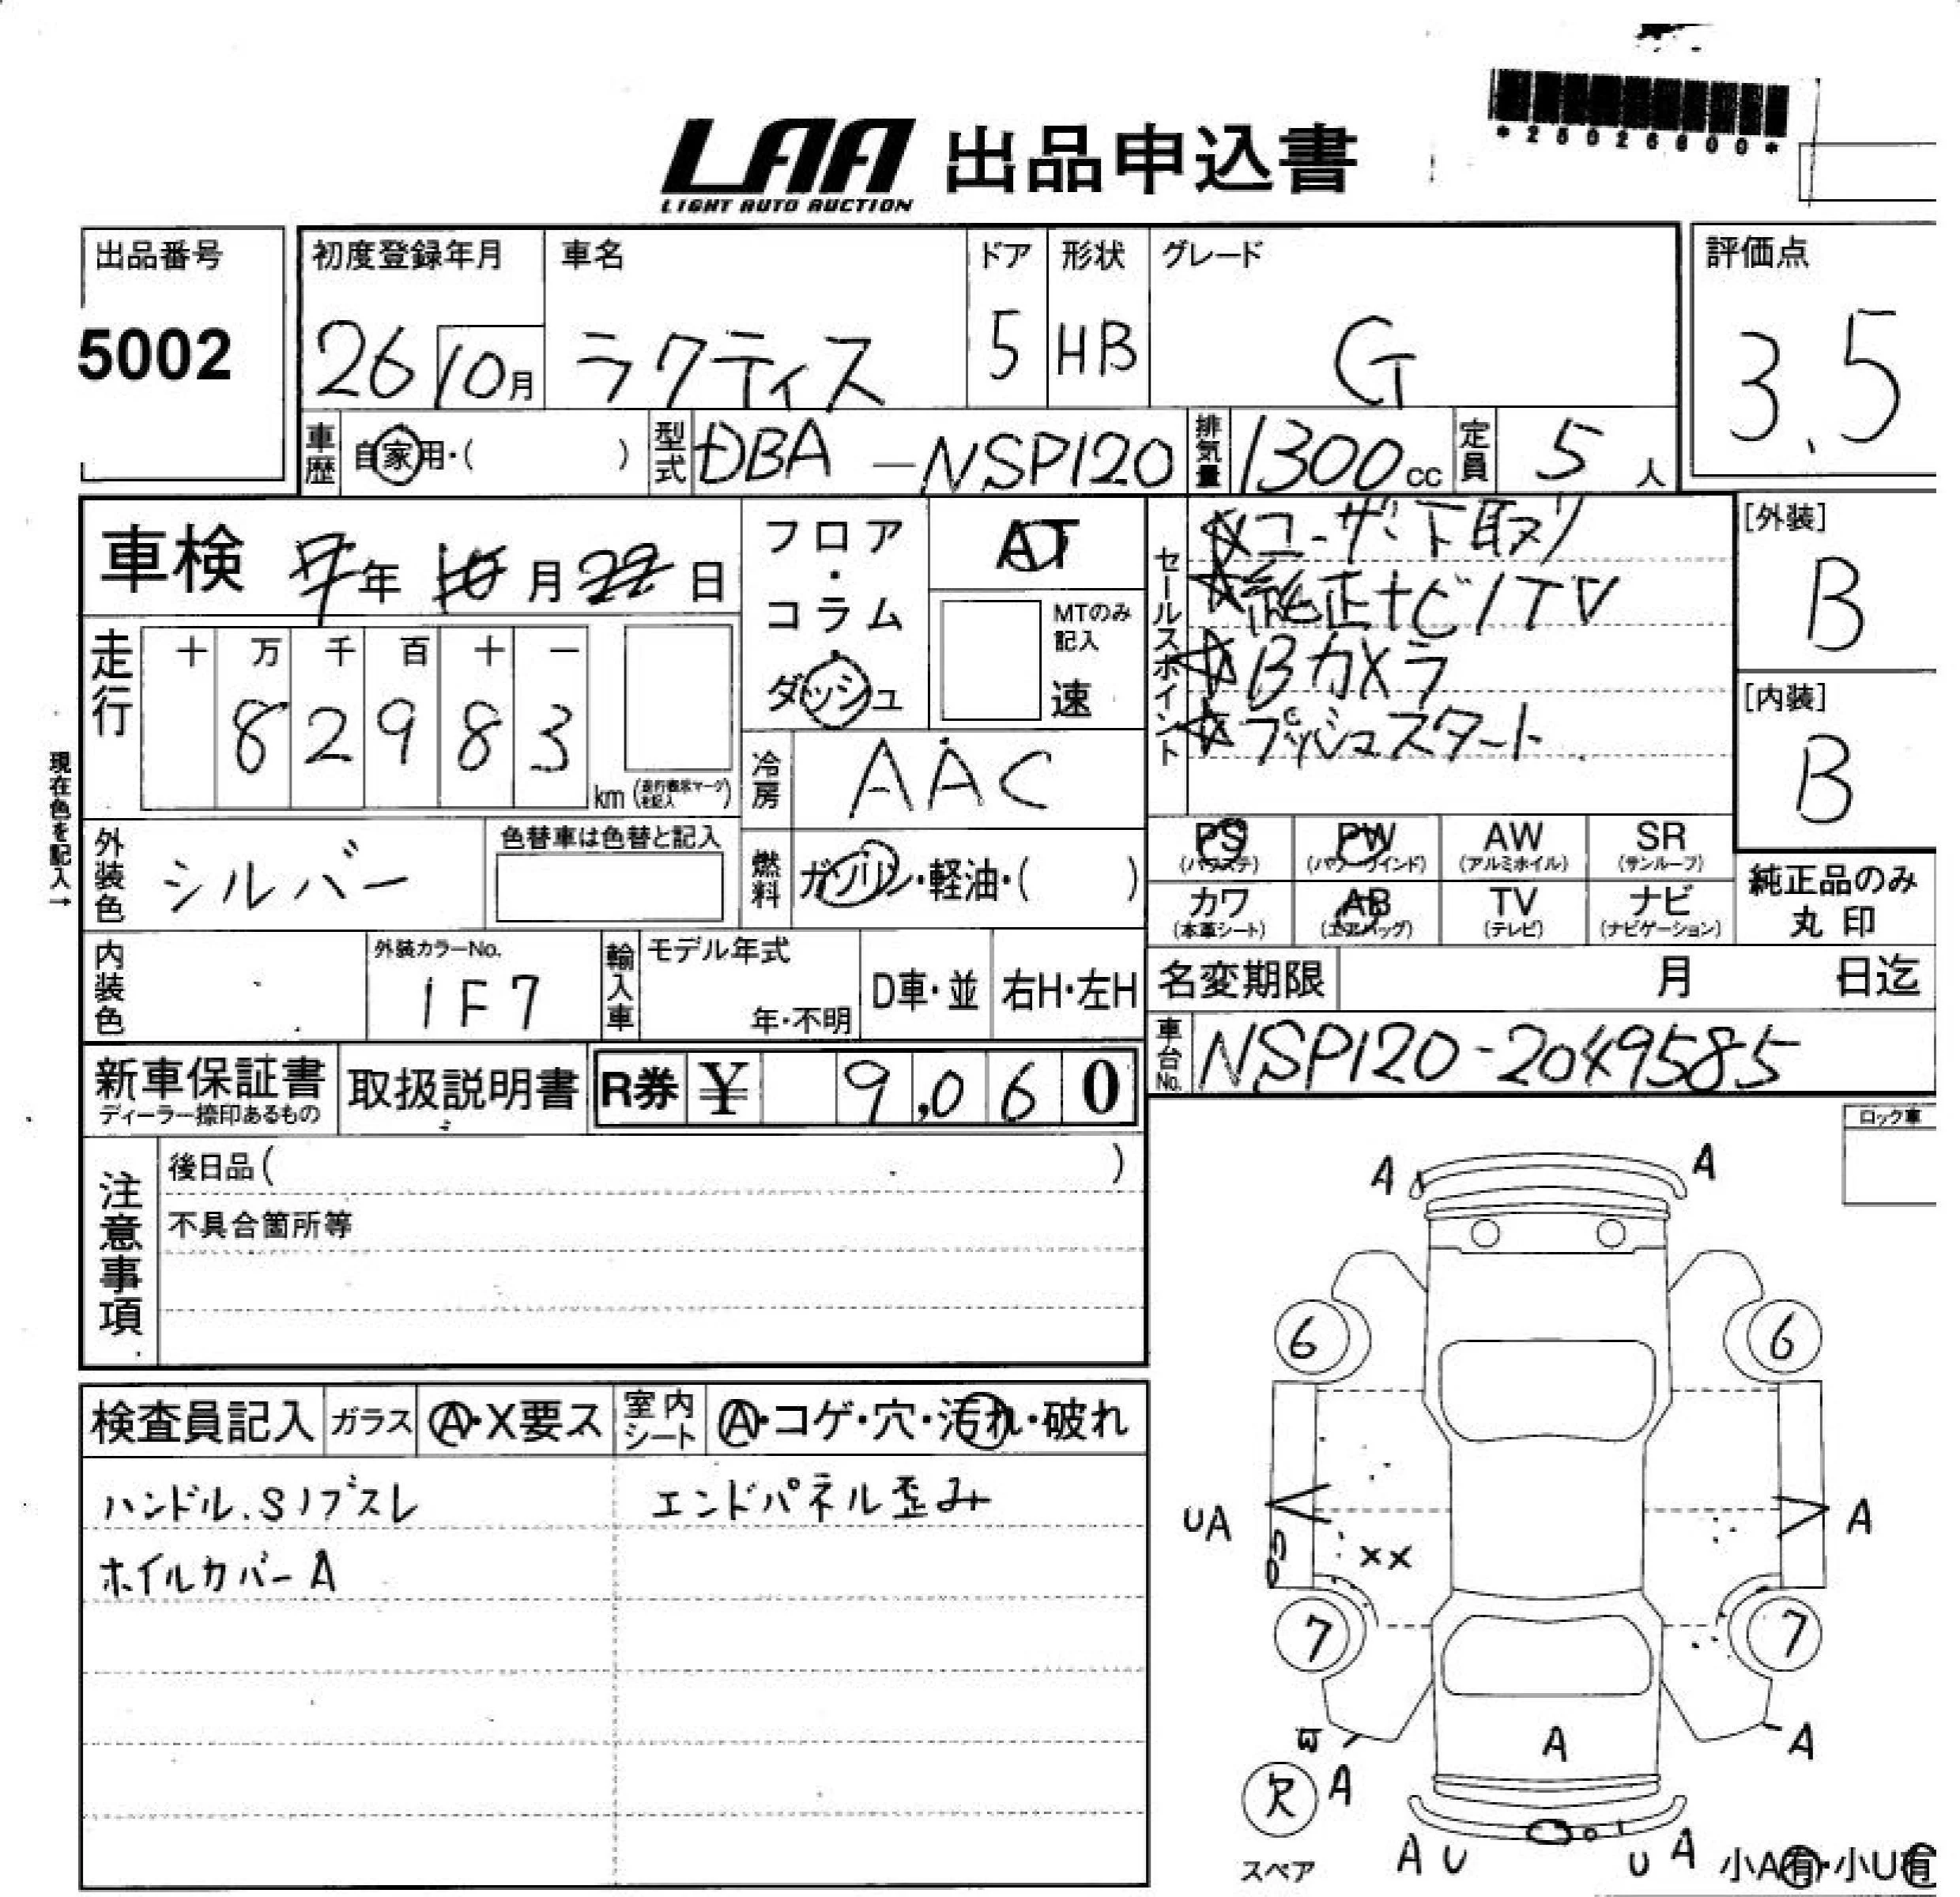 *25026600*
LAA 出品申込書
LIGHT AUTO AUCTION
出品番号
5002
初度登録年月 車名 ドア 形状 グレード
26 10月 ラクティス 5 HB G
評価点
3.5
車歴 自家用・( ) 型式 DBA-NSP120 排気量 1300cc 定員 5人
車検 7年 10月 22日
フロア・コラム
ダッシュ
AT
MTのみ記入
速
セールスポイント
☆ユーザー下取リ
☆純正ナビ/TV
☆Bカメラ
☆プッシュスタート
[外装]
B
[内装]
B
走行 十 万 千 百 十 一
8 2 9 8 3 km (走行表示マークを記入)
冷房 AAC
現在色を記入→
外装色 シルバー 色替車は色替と記入
燃料 ガソリン・軽油・( )
PS (パワステ) PW (パワーウインド) AW (アルミホイル) SR (サンルーフ)
カワ (本革シート) AB (エアバッグ) TV (テレビ) ナビ (ナビゲーション)
純正品のみ
丸印
内装色 外装カラーNo. 1F7 輸入車 モデル年式 年・不明 D車・並 右H・左H
名変期限 月 日迄
車台No. NSP120-2049585
新車保証書 ディーラー捺印あるもの 取扱説明書 R券 ¥ 9,060
注意事項
後日品( )
不具合箇所等
ロック車
検査員記入 ガラス A・X要ス 室内シート A・コゲ・穴・汚れ・破れ
ハンドル.Sノブスレ エンドパネル歪み
ホイルカバーA
A A
6 6
UA A
XX
7 7
A A
A
欠
スペア
A U U A
小A有・小U有